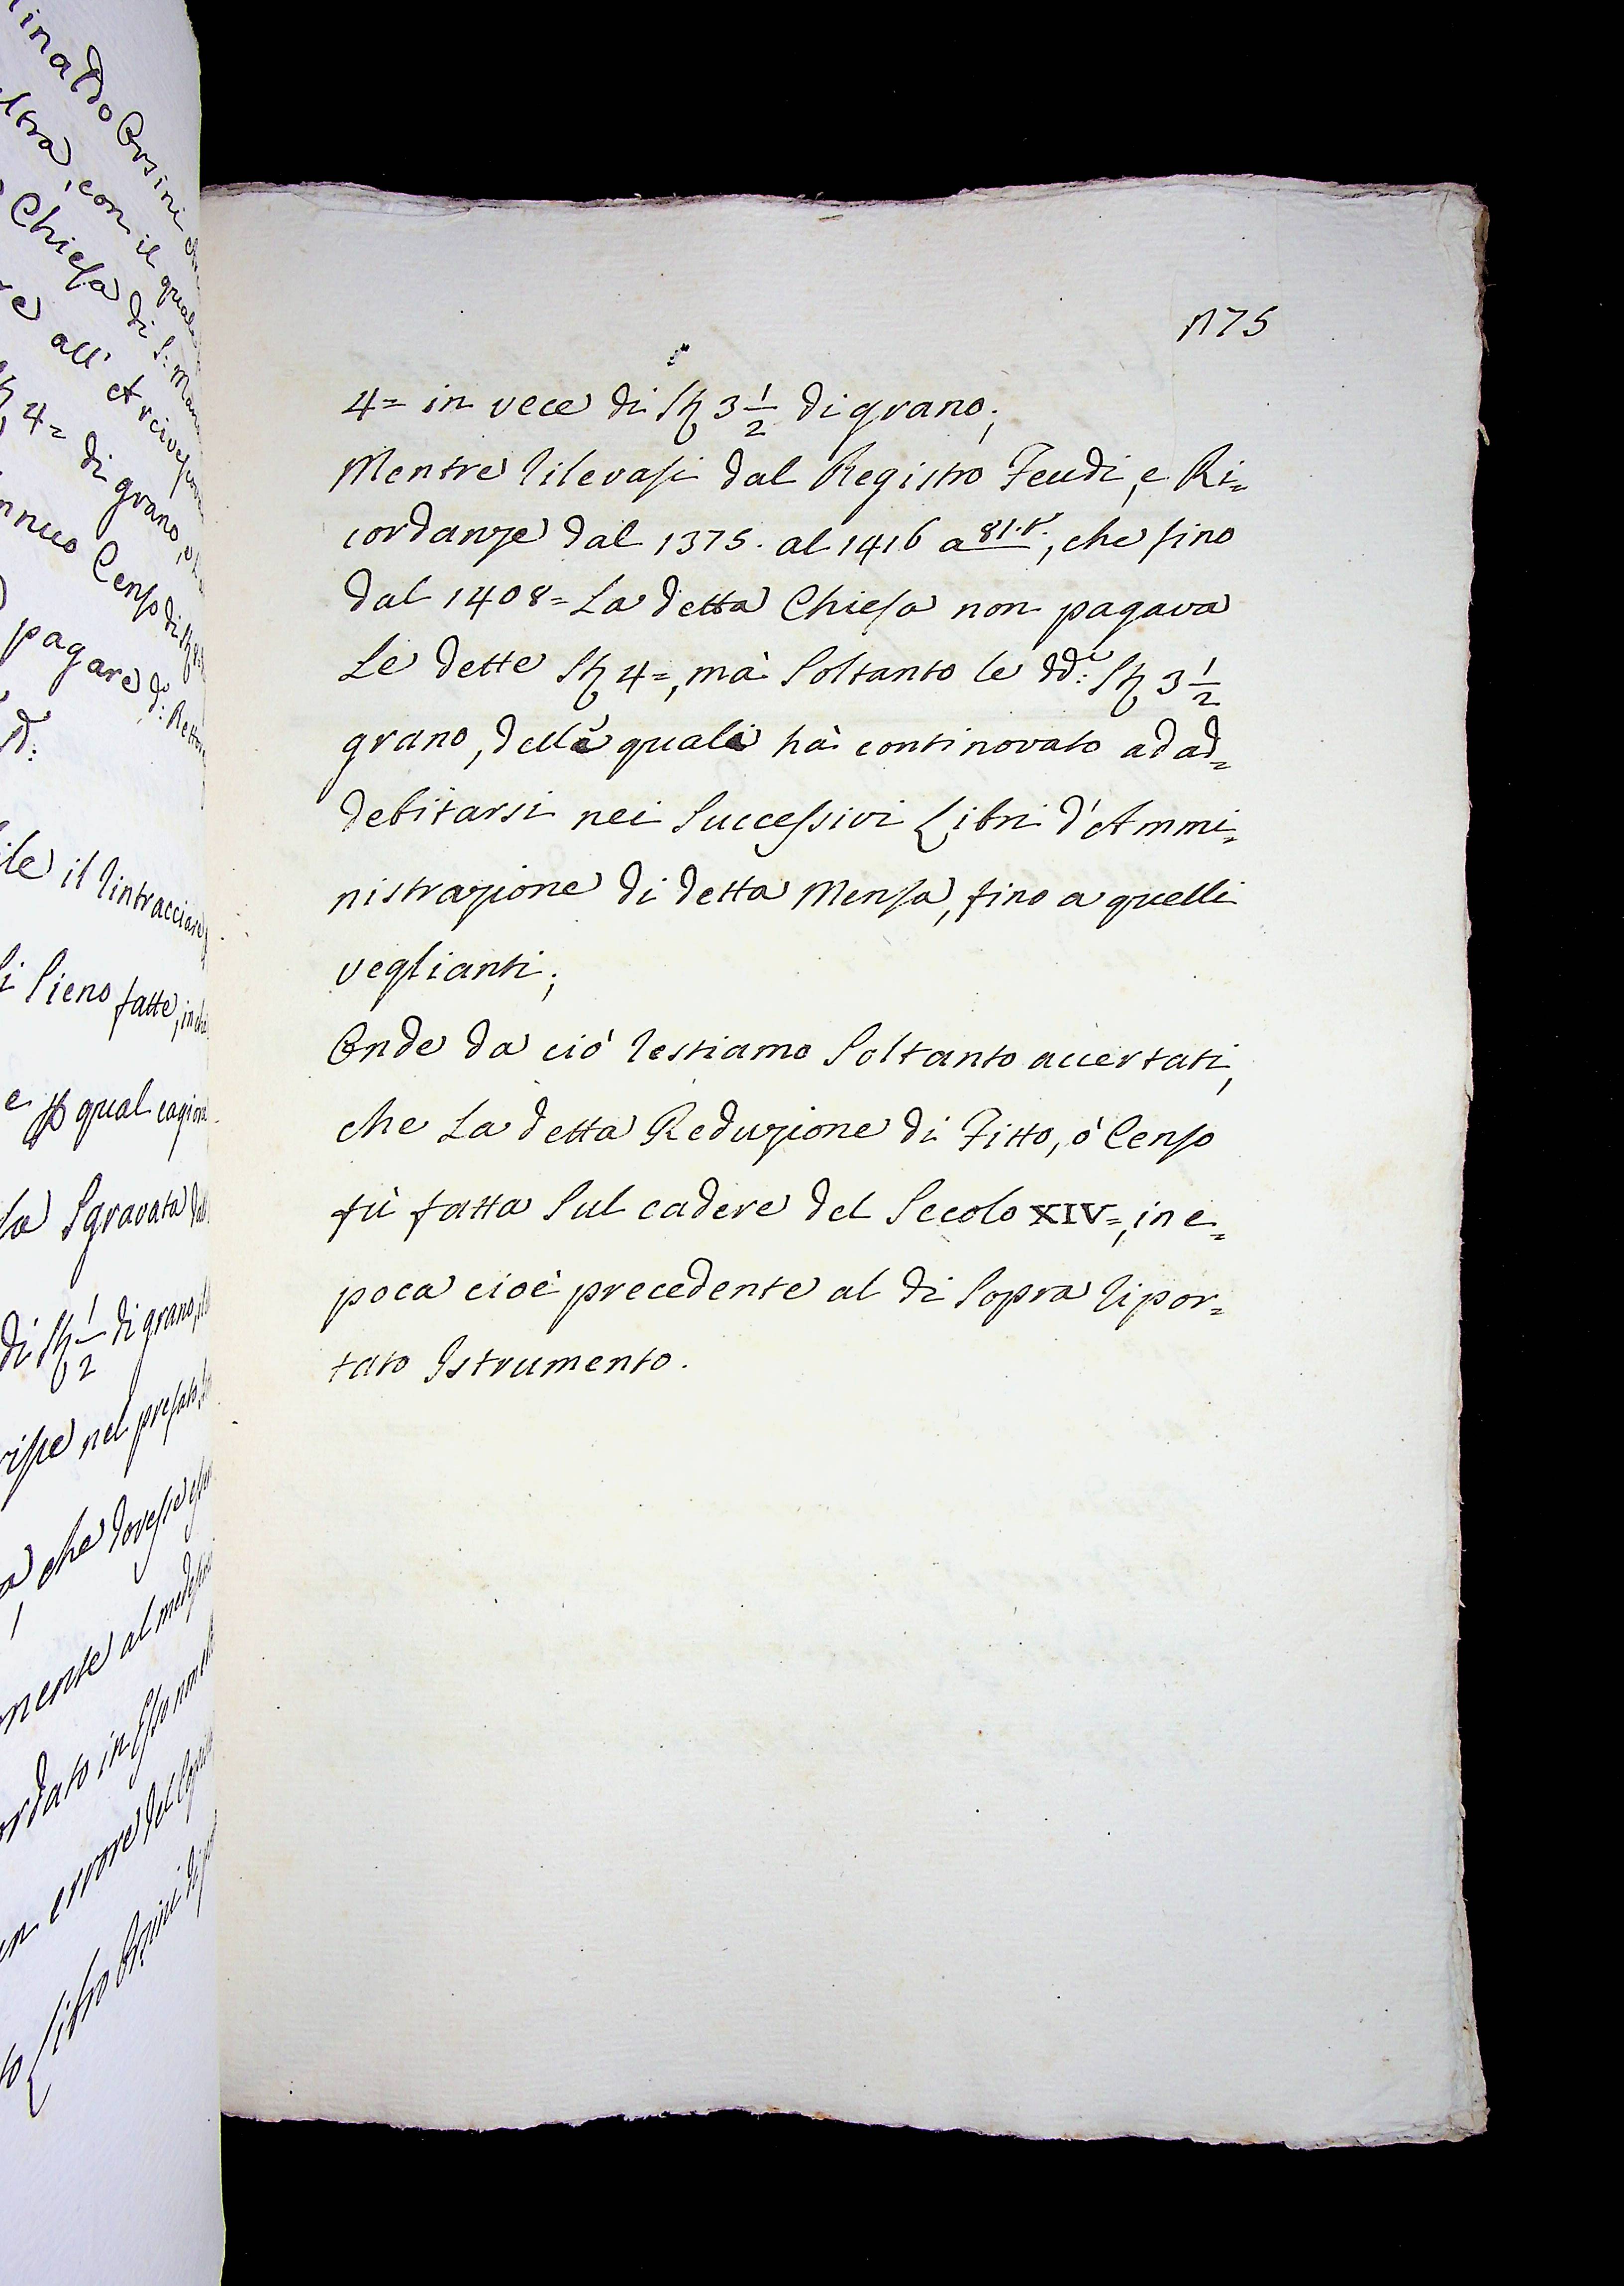 1175
4= in vece di St 3 1/2 di grano;
Mentre rilevasi dal Registro Feudi, e Ri=
cordanze dal 1375. al 1416 a 81.t., che fino
dal 1408= La detta Chiesa non pagava
Le dette St 4=, mà Soltanto le dd.e St 3 1/2
grano, delle quali hà continovato ad ad=
debitarsi nei Successivi Libri d'Ammi=
nistrazione di detta Mensa, fino a quelli
veglianti;
Onde da ciò restiamo Soltanto accertati,
che La detta Reduzione di Fitto, ò Censo
fù fatta Sul cadere del Secolo XIV=, in e=
poca cioè precedente al di Sopra ripor=
tato Istrumento.
inaldo Orsini
ltra, con il qual
Chiesa di S: Mar
e all' Arcivesco
4= di grano,
nnuo Censo di
pagare d.o: Rettor
ile il rintracciare
Sieno fatte, in che
e p qual cagione
Sgravata
di St 1/2 di grano,
nel prefato
che dovesse
mente al medesimo
ordato in Esso non
errore del Copi
Libro